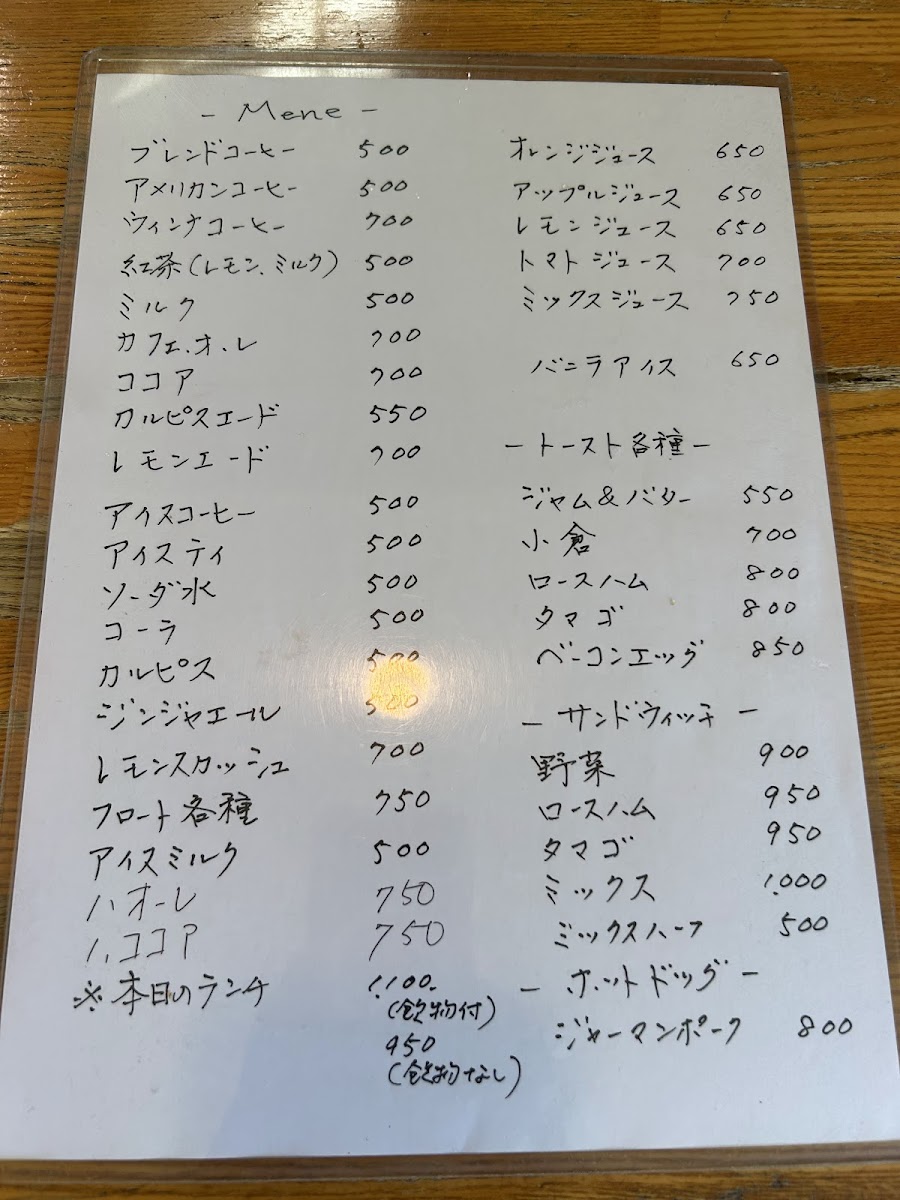 - Mene -
ブレンドコーヒー 500
アメリカンコーヒー 500
ウィンナコーヒー 700
紅茶(レモン、ミルク) 500
ミルク 500
カフェ.オ.レ 700
ココア 700
カルピスエード 550
レモンエード 700
アイスコーヒー 500
アイスティ 500
ソーダ水 500
コーラ 500
カルピス 500
ジンジャエール 500
レモンスカッシュ 700
フロート各種 750
アイスミルク 500
〃オーレ 750
〃ココア 750
※本日のランチ 1,100.
(飲物付)
950
(飲物なし)
オレンジジュース 650
アップルジュース 650
レモンジュース 650
トマトジュース 700
ミックスジュース 750
バニラアイス 650
-トースト各種-
ジャム&バター 550
小倉 700
ロースハム 800
タマゴ 800
ベーコンエッグ 850
- サンドウィッチ -
野菜 900
ロースハム 950
タマゴ 950
ミックス 1,000
ミックスハーフ 500
- ホットドッグ -
ジャーマンポーク 800